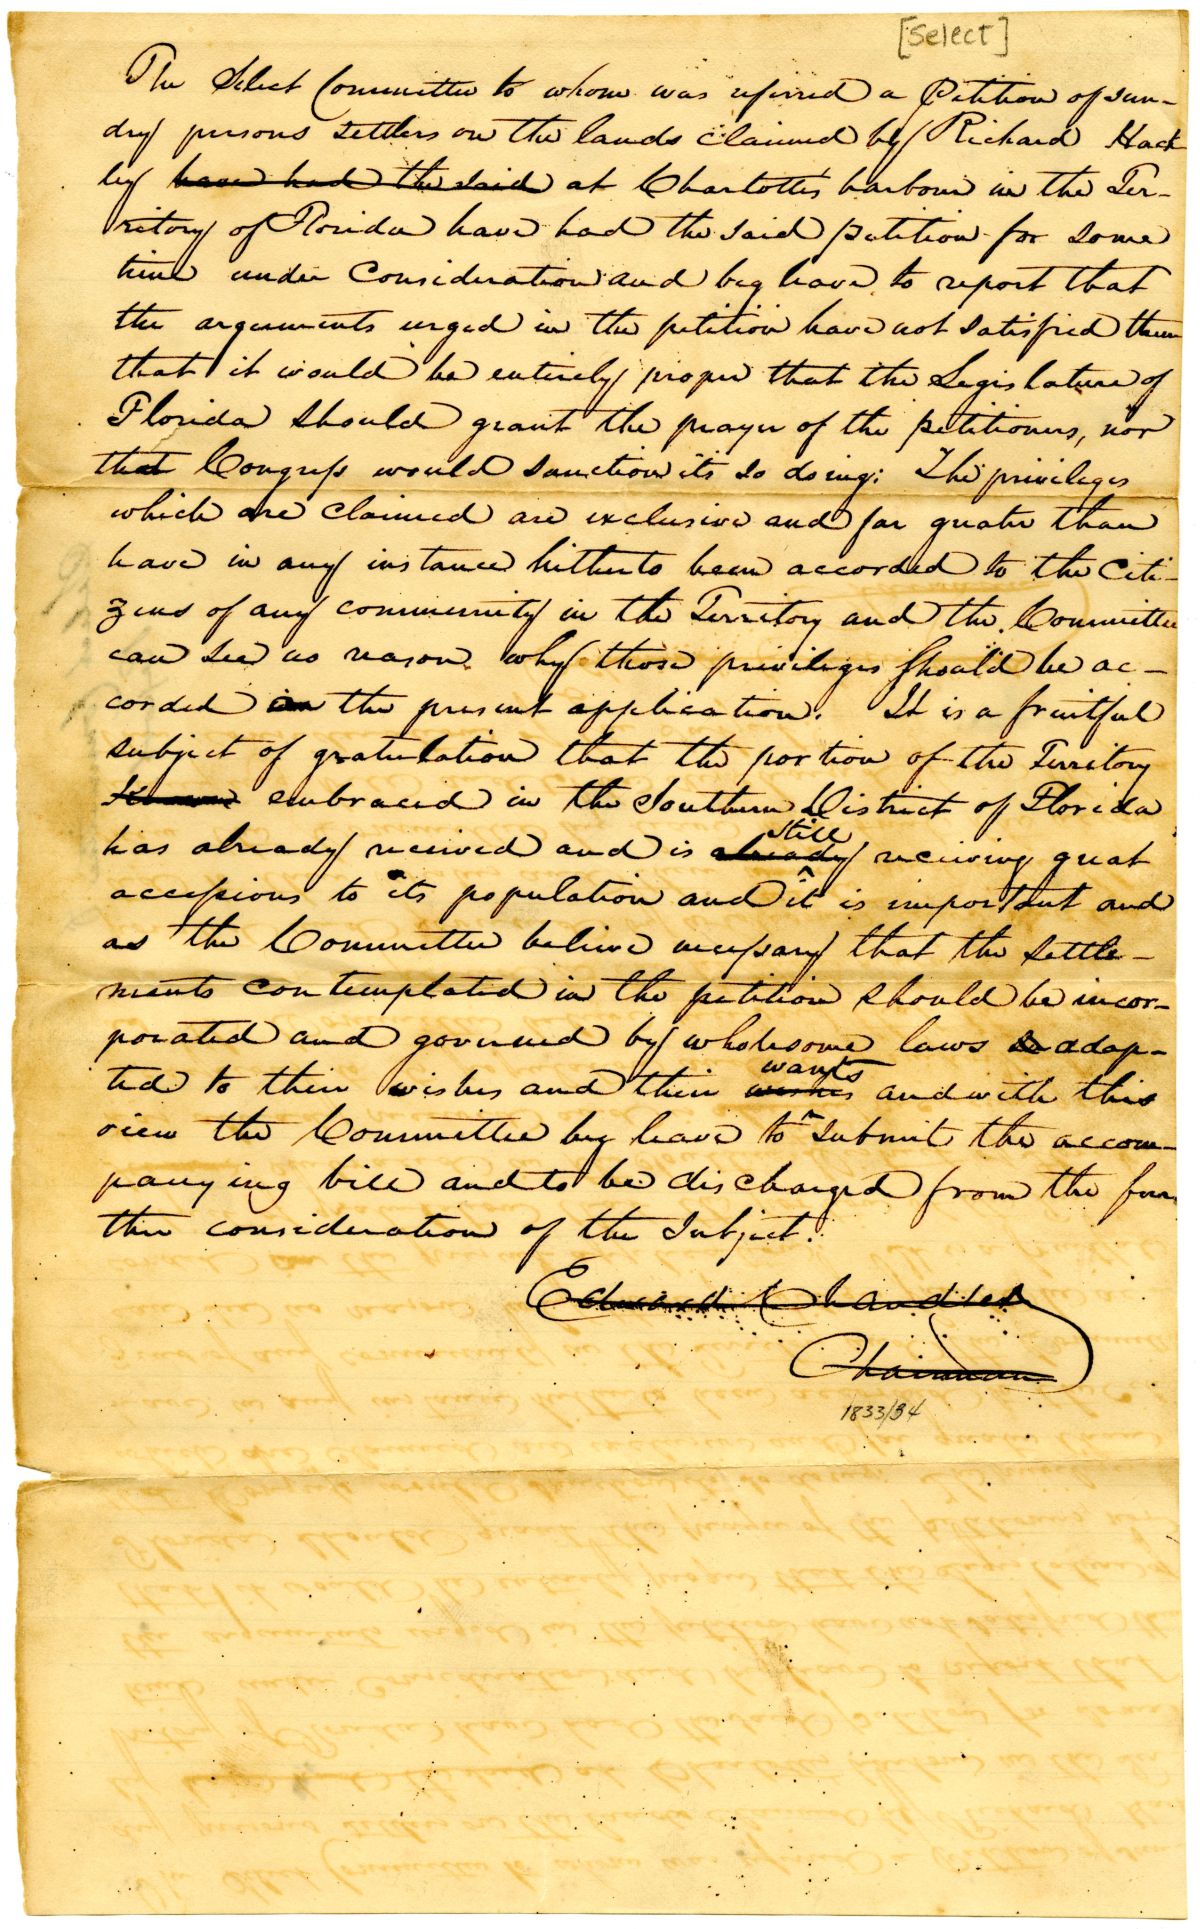 [Select]
The Select Committee to whom was referred a Petition of sun-
dry persons settlers on the lands claimed by Richard Hack
ley have had the said at Charlotte's harbour in the Ter-
ritory of Florida have had the said petition for some
time under consideration and beg leave to report that
the arguments urged in the petition have not satisfied them
that it would be entirely proper that the Legislature of
Florida should grant the prayer of the petitioners, nor
that Congress would sanction its so doing: The privileges
which are claimed are exclusive and far greater than
have in any instance hitherto been accorded to the Citi-
zens of any community in the Territory and the Committee
can see no reason why those privileges should be ac-
corded in the present application. It is a fruitful
subject of gratulation that the portion of the Territory
embraced in the Southern District of Florida
still
has already received and is already receiving great
accessions to its population and it is important and
as the Committee believe necessary that the settle-
ments contemplated in the petition should be incor-
porated and governed by wholesome laws so adap-
wants
ted to their wishes and their wishes and with this
view the Committee beg leave to submit the accom-
panying bill and to be discharged from the fur
ther consideration of the Subject.
Edward Chandler
Chairman
1833/34